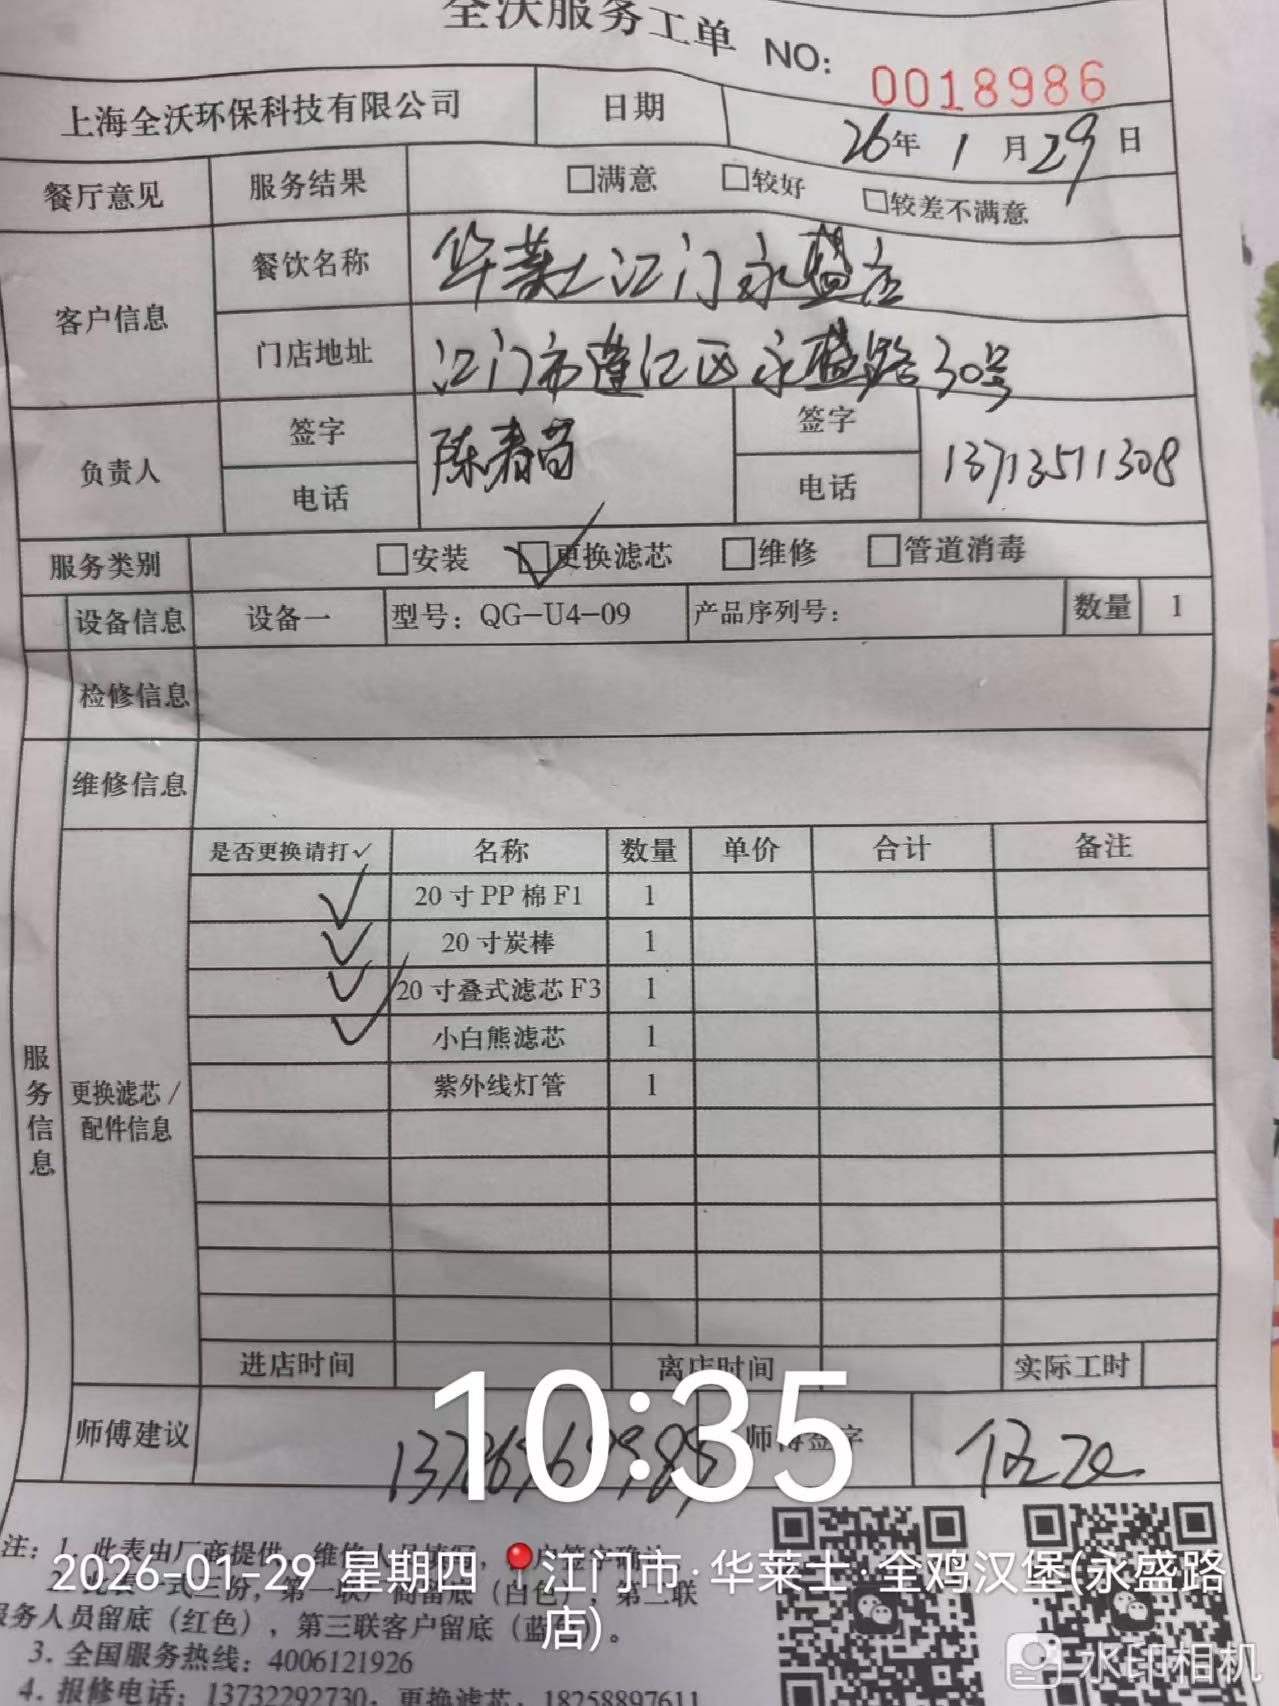 全沃服务工单 NO: 0018986
上海全沃环保科技有限公司 日期 26年 1月29日
餐厅意见 服务结果 □满意 □较好 □较差不满意
客户信息 餐饮名称 华莱士江门永盛店
门店地址 江门市蓬江区永盛路30号
负责人 签字 陈春苗 签字
电话 电话 13713511308
服务类别 □安装 ☑更换滤芯 □维修 □管道消毒
设备信息 设备一 型号：QG-U4-09 产品序列号： 数量 1
检修信息
维修信息
服务信息
更换滤芯/配件信息
是否更换请打✓ 名称 数量 单价 合计 备注
✓ 20寸PP棉F1 1
✓ 20寸炭棒 1
✓ 20寸叠式滤芯F3 1
✓ 小白熊滤芯 1
紫外线灯管 1
进店时间 离店时间 实际工时
师傅建议 师傅签字
10:35
注：1. 此表由厂商提供
2026-01-29 星期四 江门市·华莱士·全鸡汉堡(永盛路店)
服务人员留底（红色），第三联客户留底（蓝色）。
3. 全国服务热线：4006121926
4. 报修电话：13732292730，更换滤芯：18258897611
水印相机